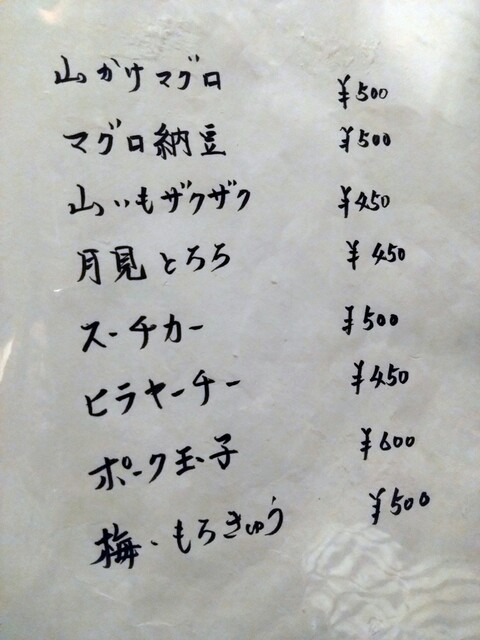 山かけマグロ ¥500
マグロ納豆 ¥500
山いもザクザク ¥450
月見とろろ ¥450
スーチカー ¥500
ヒラヤーチー ¥450
ポーク玉子 ¥600
梅、もろきゅう ¥500